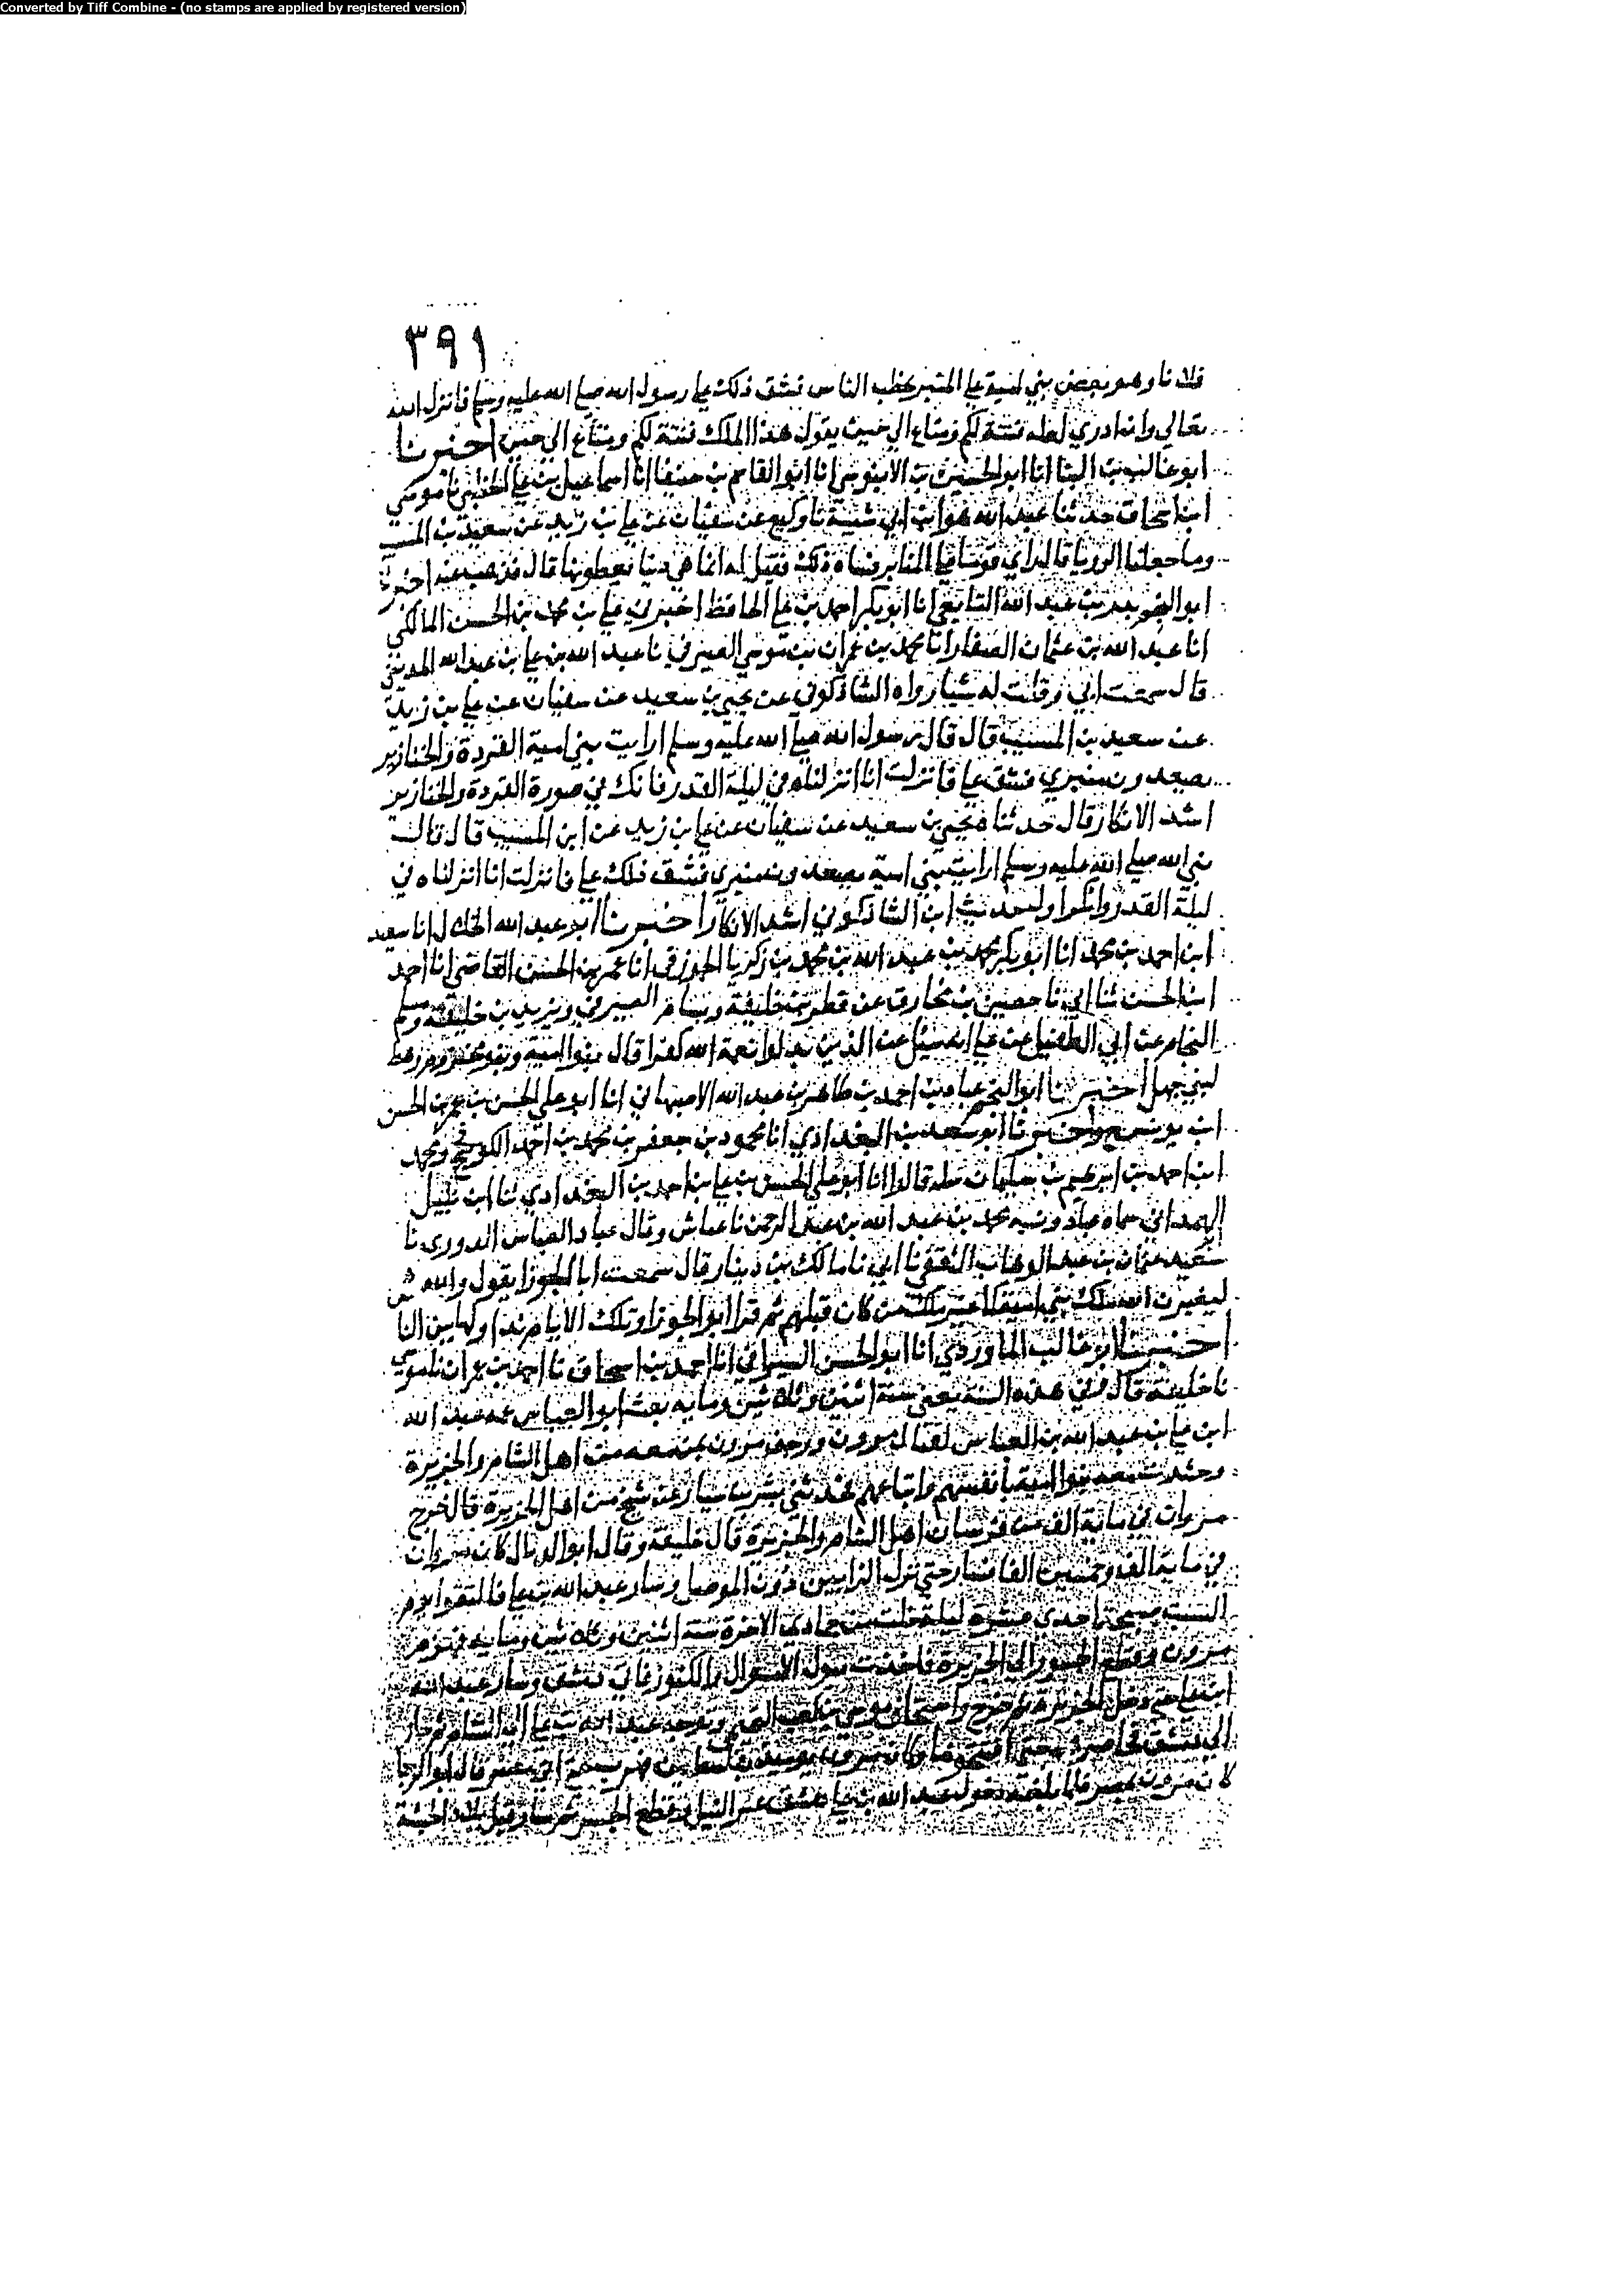 Converted by Tiff Combine - (no stamps are applied by registered version)
٣٩١
فلانا وهو بعض بني امية علي المنبر يخطب الناس فشق ذلك علي رسول الله صلي الله عليه وسلم فانزل الله
تعالي وان ادري لعله فتنة لكم ومتاع الي حين يقول هذا الملك فتنة لكم ومتاع الي حين اخبرنا
ابو غالب بن البنا انا ابو الحسين بن الابنوسي انا ابو القاسم بن انا اسماعيل بن علي الخطبي نا موسي
ابن اسحاق حدثنا عبد الله هو ابن ابي شيبة نا وكيع عن سفيان عن علي بن زيد عن سعيد بن المسيب
وما جعلنا الرويا قال راي قوما علي المنابر فساه ذلك فقيل له انما هي دنيا يعطونها قال اخبرنا
ابو النجم بدر بن عبد الله انا ابو بكر احمد بن علي الحافظ اخبرني علي بن محمد بن الحسن المالكي
انا عبد الله بن عثمان الصفار انا محمد بن عمران بن موسي الصيرفي نا عبد الله بن علي بن عبد الله المديني
قال سمعت ابي وقلت له شيا رواه الشاذكوني عن يحيي بن سعيد عن سفيان عن علي بن زيد
عن سعيد بن المسيب قال قال رسول الله صلي الله عليه وسلم ارايت بني امية القردة والخنازير
يصعدون منبري فشق علي فانزلت انا انزلناه في ليلة القدر فانك في صورة القردة والخنازير
اشد الانكار قال حدثنا يحيي بن سعيد عن سفيان عن علي بن زيد عن ابن المسيب قال قال
نبي الله صلي الله عليه وسلم ارايت بني امية يصعدون منبري فشق ذلك علي فانزلت انا انزلناه في
ليلة القدر وانكر ابن الشاذكوني اشد الانكار اخبرنا ابو عبد الله الخلال انا سعيد
ابن احمد بن محمد انا ابو بكر محمد بن عبد الله بن محمد بن زكريا الجوزقي انا عمر بن الحسن القاضي انا احمد
ابن الحسن ثنا ابي نا حصين بن مخارق عن فطر بن خليفة وبسام الصيرفي ويزيد بن خليفة ومسلم
عن ابي الطفيل عن علي انه سيل عن الذين بدلوا نعمة الله كفرا قال بنو امية وبنو
اخبرنا ابو النجم عباد بن احمد بن طاهر بن عبد الله الاصبهاني انا ابو علي الحسن بن عمر بن الحسن
ابن يونس واخبرنا ابو سعد بن البغدادي انا محمود بن جعفر بن محمد بن احمد الكوسج ومحمد
ابن احمد بن ابرهيم بن قالوا انا ابو علي الحسن بن علي بن احمد بن البغدادي ثنا ابن
الهمداني سماه عباد ونسبه محمد بن عبد الله بن عبد الرحمن نا عباس وقال عباد العباس الدوري نا
سعيد عثمان بن عبد الوهاب الثقفي نا ابي نا مالك بن دينار قال سمعت ابا الجوزا يقول والله
ليغيرن الله ملك بني امية كما غير ملك من كان قبلهم ثم قرا ابو الجوزا وتلك الايام نداولها بين النا
اخبرنا ابو غالب الماوردي انا ابو الحسن السيرافي انا احمد بن اسحاق نا احمد بن عمران نا موسي
نا خليفة قال وفي هذه السنة يعني سنة اثنتين وثلاثين ومايه بعث ابو العباس عمه عبد الله
ابن علي بن عبد الله بن العباس لقتال مروان وزحف مروان بمن معه من اهل الشام والجزيرة
وحشدت معه بنو امية بانفسهم واتباعهم فحدثني بشر بن سيار عن شيخ من اهل الجزيرة قال خرج
مروان في ماية الف من فرسان اهل الشام والجزيرة قال خليفة وقال ابو الذيال كان مروان
في ماية الف وخمسين الفا فسار حتي نزل الزابين دون الموصل وسار عبد الله بن علي فالتقوا يوم
السبت صبيحة احدي عشرة ليلة خلت من جمادي الاخرة سنة اثنتين وثلاثين ومايه فهزم
مروان وقطع الجسور الي الجزيرة فاخذ بيوت الاموال والكنوز فاتي دمشق وسار عبد الله
ابن علي حتي دخل الجزيرة ثم خرج موسي بن كعب التميمي وتوجه عبد الله بن علي الي الشام
الي دمشق فحاصروه حتي افتتحوها وكان مروان يوميذ بفلسطين قال ابو الذيال
كان مروان بمصر فلما بلغه دخول عبد الله بن علي دمشق عبر النيل وقطع الجسر ثم سار قبل بلاد الحبشة